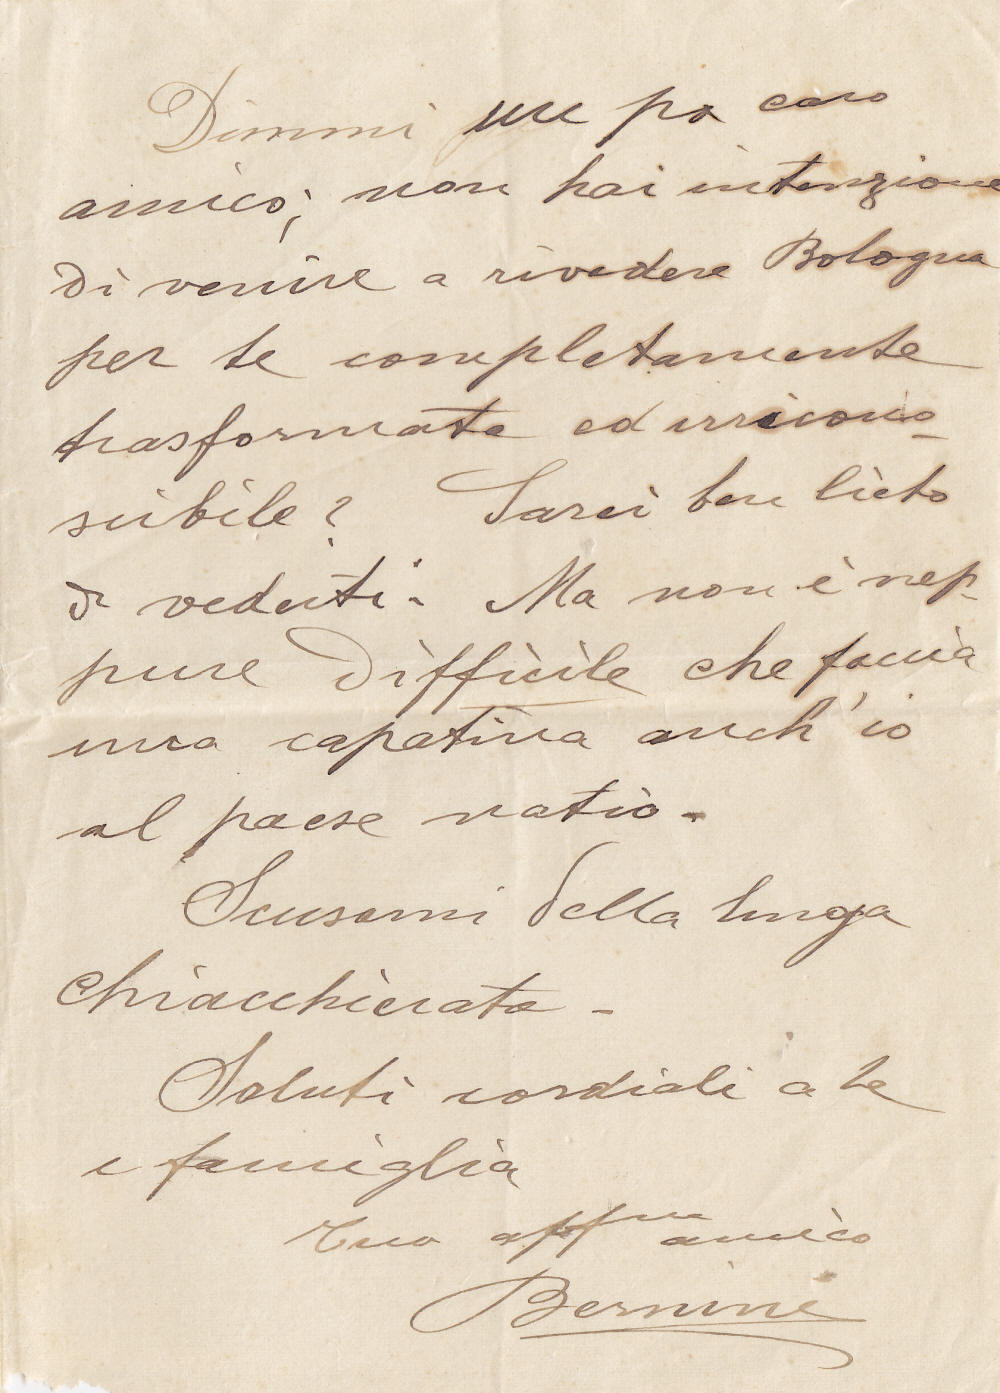 Dimmi un po caro
amico; non hai intenzione
di venire a rivedere Bologna
per te completamente
trasformata ed irricono-
scibile? Sarei ben lieto
di vederti. Ma non è nep-
pure difficile che faccia
una capatina anch'io
al paese natio.
Scusami della lunga
chiacchierata -
Saluti cordiali a te
e famiglia
Tuo aff.mo amico
Bernini